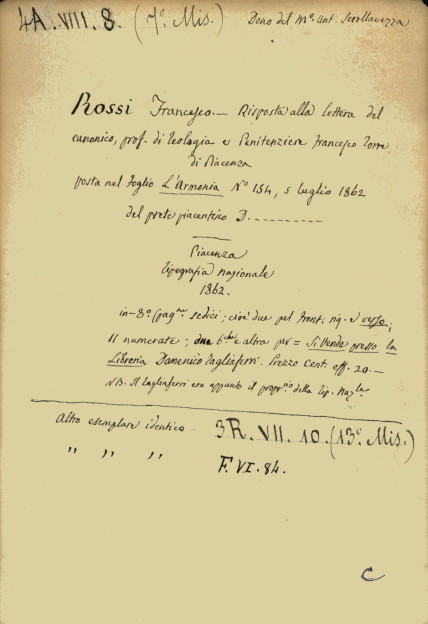 4A. VIII. 8. (7º Mis.) Dono del Mº. Ant. Scrollavezza
Rossi Francesco. — Risposta alla lettera del
canonico, prof. di Teologia e Penitenziere Francesco Torre
di Piacenza
posta nel foglio L'Armonia Nº 154, 5 luglio 1862
del prete piacentino D. - - - - - - - - -
Piacenza
Tipografia Nazionale
1862.
in-8º (pag.ne sedici; cioè due pel front. rig. e verso;
11 numerate; due b.che e altra per = Si Vende presso la
Libreria Domenico Tagliaferri. Prezzo Cent. eff. 20. —
NB. Il Tagliaferri era appunto il propr.rio della Tip. Naz.le
Altro esemplare identico - 3R. VII. 10. (13º Mis.)
" " " F. VI. 84.
C